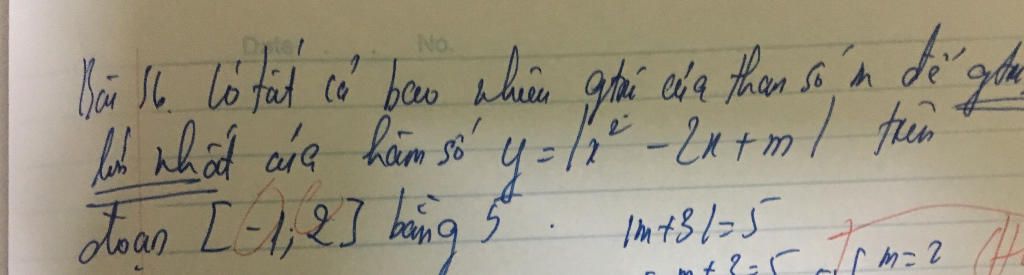 Date No.
Bài 56. Có tất cả bao nhiêu gtrị của tham số m để gtrị
lớn nhất của hàm số y = |x² - 2x + m| trên
đoạn [-1; 2] bằng 5. |m+3| = 5
m = 2